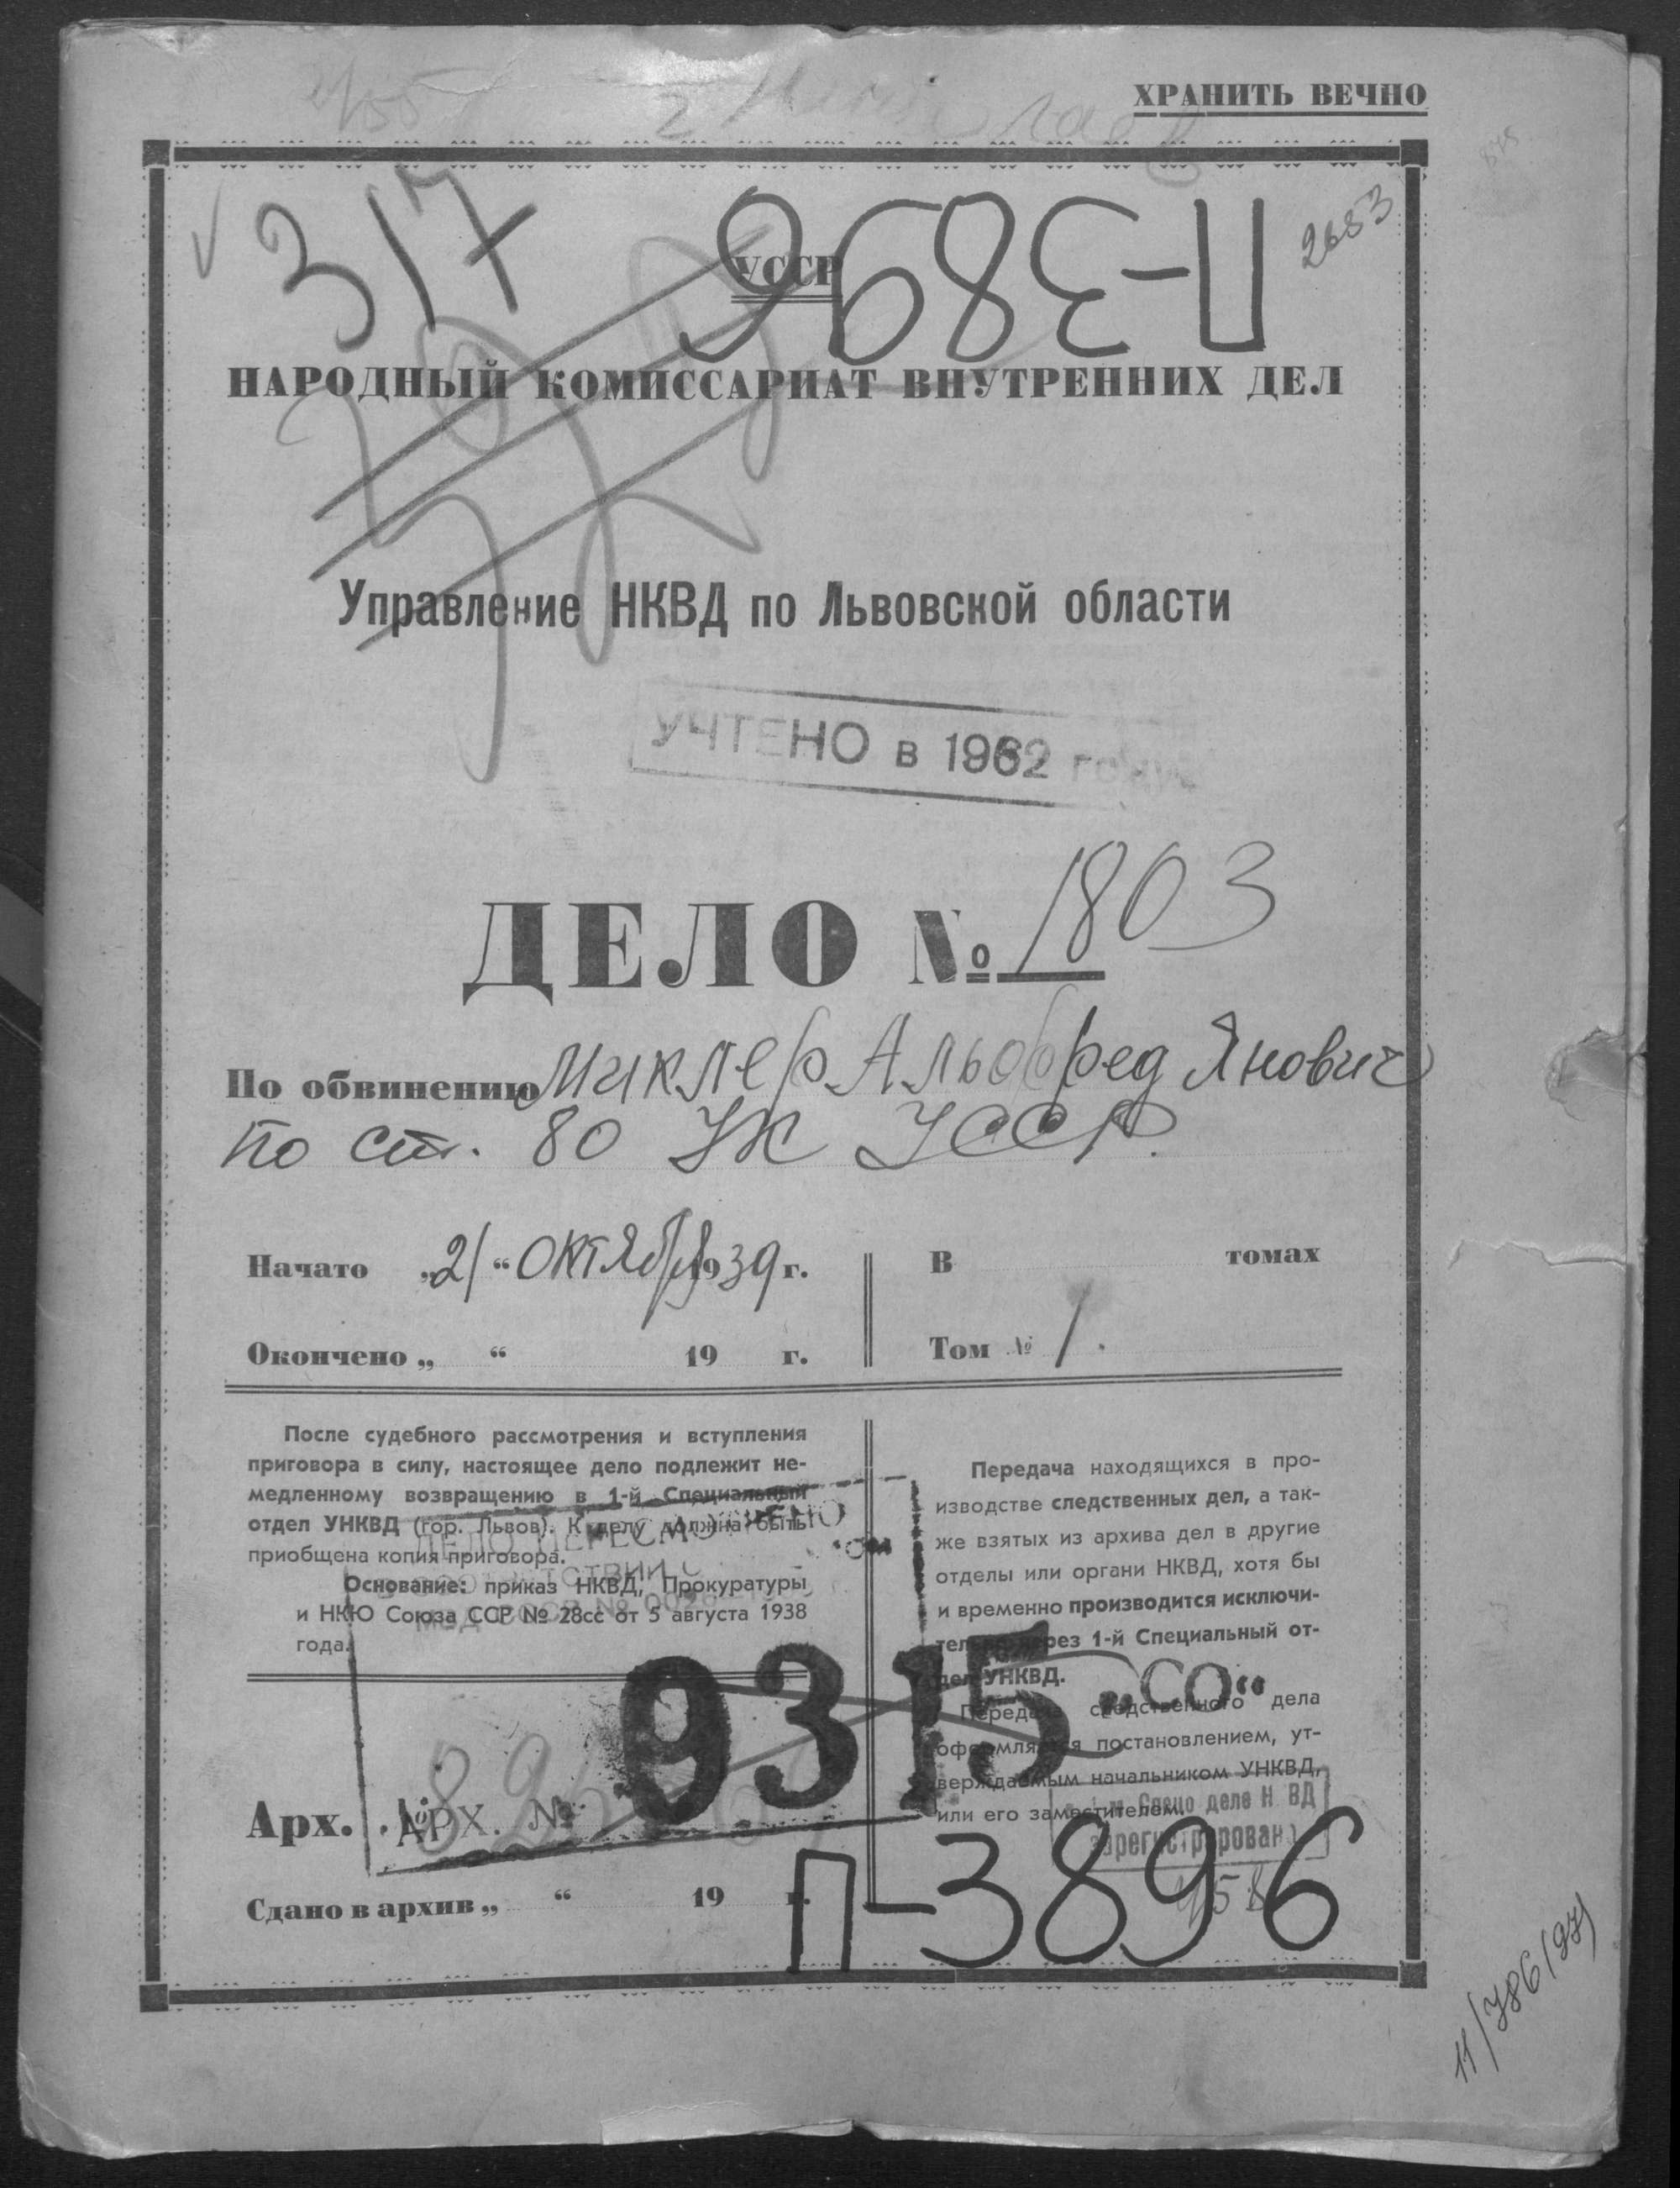 ХРАНИТЬ ВЕЧНО
317
П-3896
2683
УССР
НАРОДНЫЙ КОМИССАРИАТ ВНУТРЕННИХ ДЕЛ
Управление НКВД по Львовской области
УЧТЕНО в 1962 году
ДЕЛО № 1803
По обвинению Миклер Альфред Янович
по ст. 80 УК УССР.
Начато „21“ октября 1939 г.
В томах
Окончено „ “ 19 г.
Том № 1.
После судебного рассмотрения и вступления
приговора в силу, настоящее дело подлежит не-
медленному возвращению в 1-й Специальный
отдел УНКВД (гор. Львов). К делу должна быть
приобщена копия приговора.
Основание: приказ НКВД, Прокуратуры
и НКЮ Союза ССР № 28сс от 5 августа 1938
года.
Передача находящихся в про-
изводстве следственных дел, а так-
же взятых из архива дел в другие
отделы или органи НКВД, хотя бы
и временно производится исключи-
тельно через 1-й Специальный от-
дел УНКВД.
Передача следственного дела
оформляется постановлением, ут-
верждаемым начальником УНКВД,
или его заместителем.
ДЕЛО ПЕРЕСМОТРЕНО
В СООТВЕТСТВИИ С
9315 „СО“
Арх. №
АРХ. №
зарегистровано
Сдано в архив „ “ 19 г.
П-3896
11/786/97/